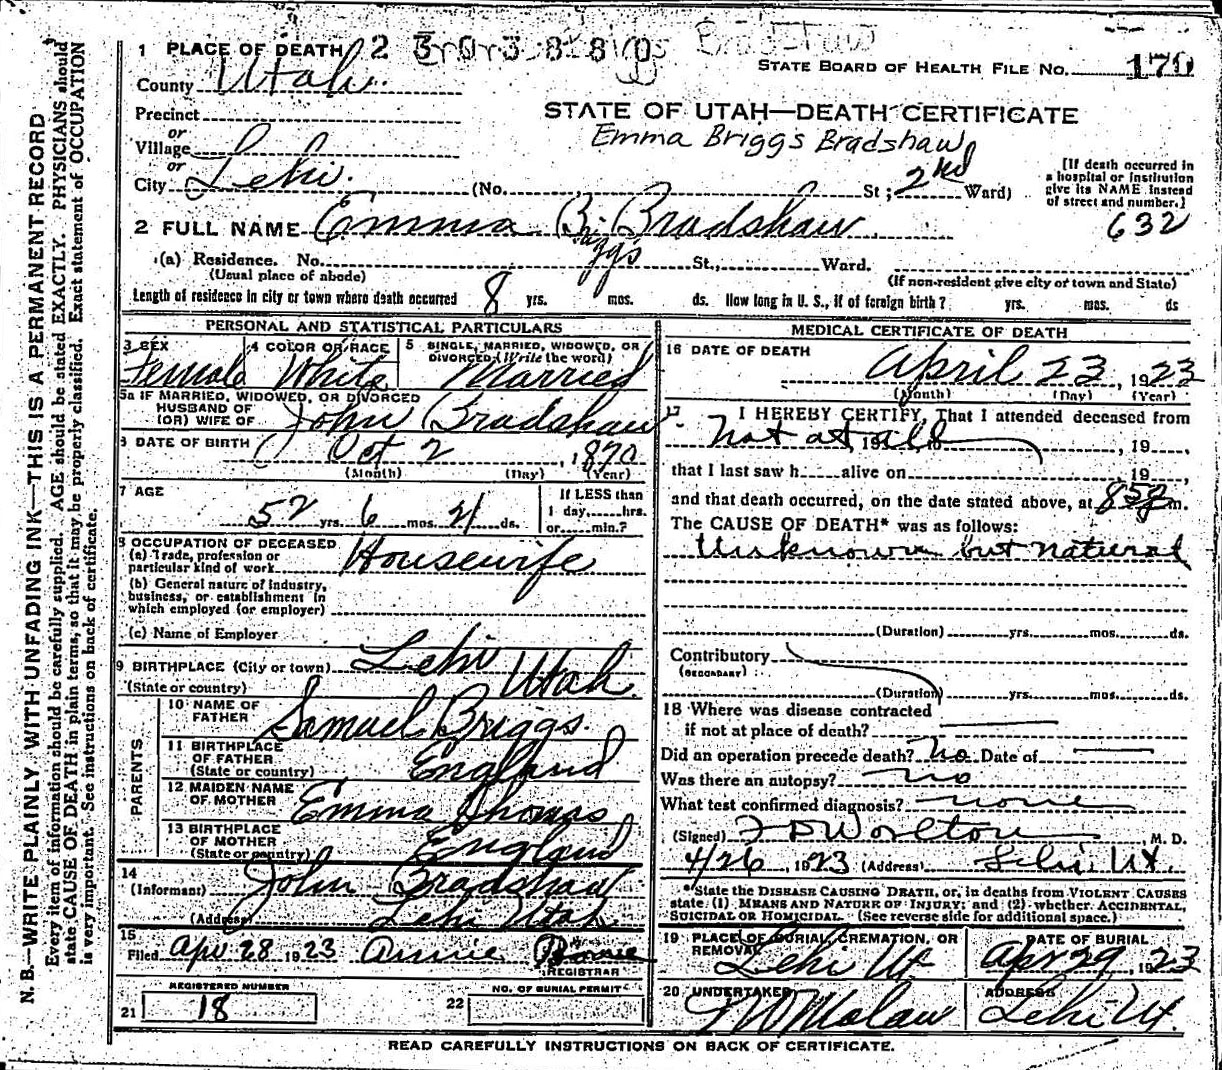 1 PLACE OF DEATH 2 3 0 3 8 8 0 Briggs Bradshaw
STATE BOARD OF HEALTH FILE NO. 170
County Utah
STATE OF UTAH—DEATH CERTIFICATE
Precinct
Emma Briggs Bradshaw
or
Village
or
City Lehi. (No. St; 2nd Ward)
[If death occurred in
a hospital or institution
give its NAME instead
of street and number.]
632
2 FULL NAME Emma B. Bradshaw
iggs
(a) Residence. No. St., Ward.
(Usual place of abode) (If non-resident give city or town and State)
Length of residence in city or town where death occurred 8 yrs. mos. ds. How long in U. S., if of foreign birth? yrs. mos. ds
PERSONAL AND STATISTICAL PARTICULARS
3 SEX 4 COLOR OR RACE 5 SINGLE, MARRIED, WIDOWED, OR
DIVORCED (Write the word)
Female White Married
5a IF MARRIED, WIDOWED, OR DIVORCED
HUSBAND OF
(OR) WIFE OF John Bradshaw
6 DATE OF BIRTH Oct 2, 1870
(Month) (Day) (Year)
7 AGE
52 yrs. 6 mos. 21 ds.
If LESS than
1 day, hrs.
or min.?
8 OCCUPATION OF DECEASED
(a) Trade, profession or
particular kind of work Housewife
(b) General nature of industry,
business, or establishment in
which employed (or employer)
(c) Name of Employer
9 BIRTHPLACE (City or town) Lehi
(State or country) Utah.
PARENTS
10 NAME OF
FATHER Samuel Briggs.
11 BIRTHPLACE
OF FATHER
(State or country) England
12 MAIDEN NAME
OF MOTHER Emma Thomas
13 BIRTHPLACE
OF MOTHER
(State or country) England
14
(Informant) John Bradshaw
(Address) Lehi Utah
15
Filed Apr 28 1923 Annie
REGISTRAR
REGISTERED NUMBER
21 18
NO. OF BURIAL PERMIT
22
MEDICAL CERTIFICATE OF DEATH
16 DATE OF DEATH
April 23, 1923
(Month) (Day) (Year)
17 I HEREBY CERTIFY, That I attended deceased from
Not at all, 19 , 19 ,
that I last saw h alive on 19
and that death occurred, on the date stated above, at m.
The CAUSE OF DEATH* was as follows:
Unknown but natural
(Duration) yrs. mos. ds.
Contributory
(SECONDARY)
(Duration) yrs. mos. ds.
18 Where was disease contracted
if not at place of death?
Did an operation precede death? no Date of
Was there an autopsy? no
What test confirmed diagnosis? none
(Signed) F D Worlton M. D.
4/26, 1923 (Address) Lehi Ut.
*State the DISEASE CAUSING DEATH, or, in deaths from VIOLENT CAUSES
state (1) MEANS AND NATURE OF INJURY; and (2) whether ACCIDENTAL,
SUICIDAL OR HOMICIDAL. (See reverse side for additional space.)
19 PLACE OF BURIAL, CREMATION, OR
REMOVAL
Lehi Ut
DATE OF BURIAL
Apr 29, 1923
20 UNDERTAKER
ADDRESS
Lehi Ut.
READ CAREFULLY INSTRUCTIONS ON BACK OF CERTIFICATE.
N. B.—WRITE PLAINLY WITH UNFADING INK—THIS IS A PERMANENT RECORD
Every item of information should be carefully supplied. AGE should be stated EXACTLY. PHYSICIANS should
state CAUSE OF DEATH in plain terms, so that it may be properly classified. Exact statement of OCCUPATION
is very important. See instructions on back of certificate.